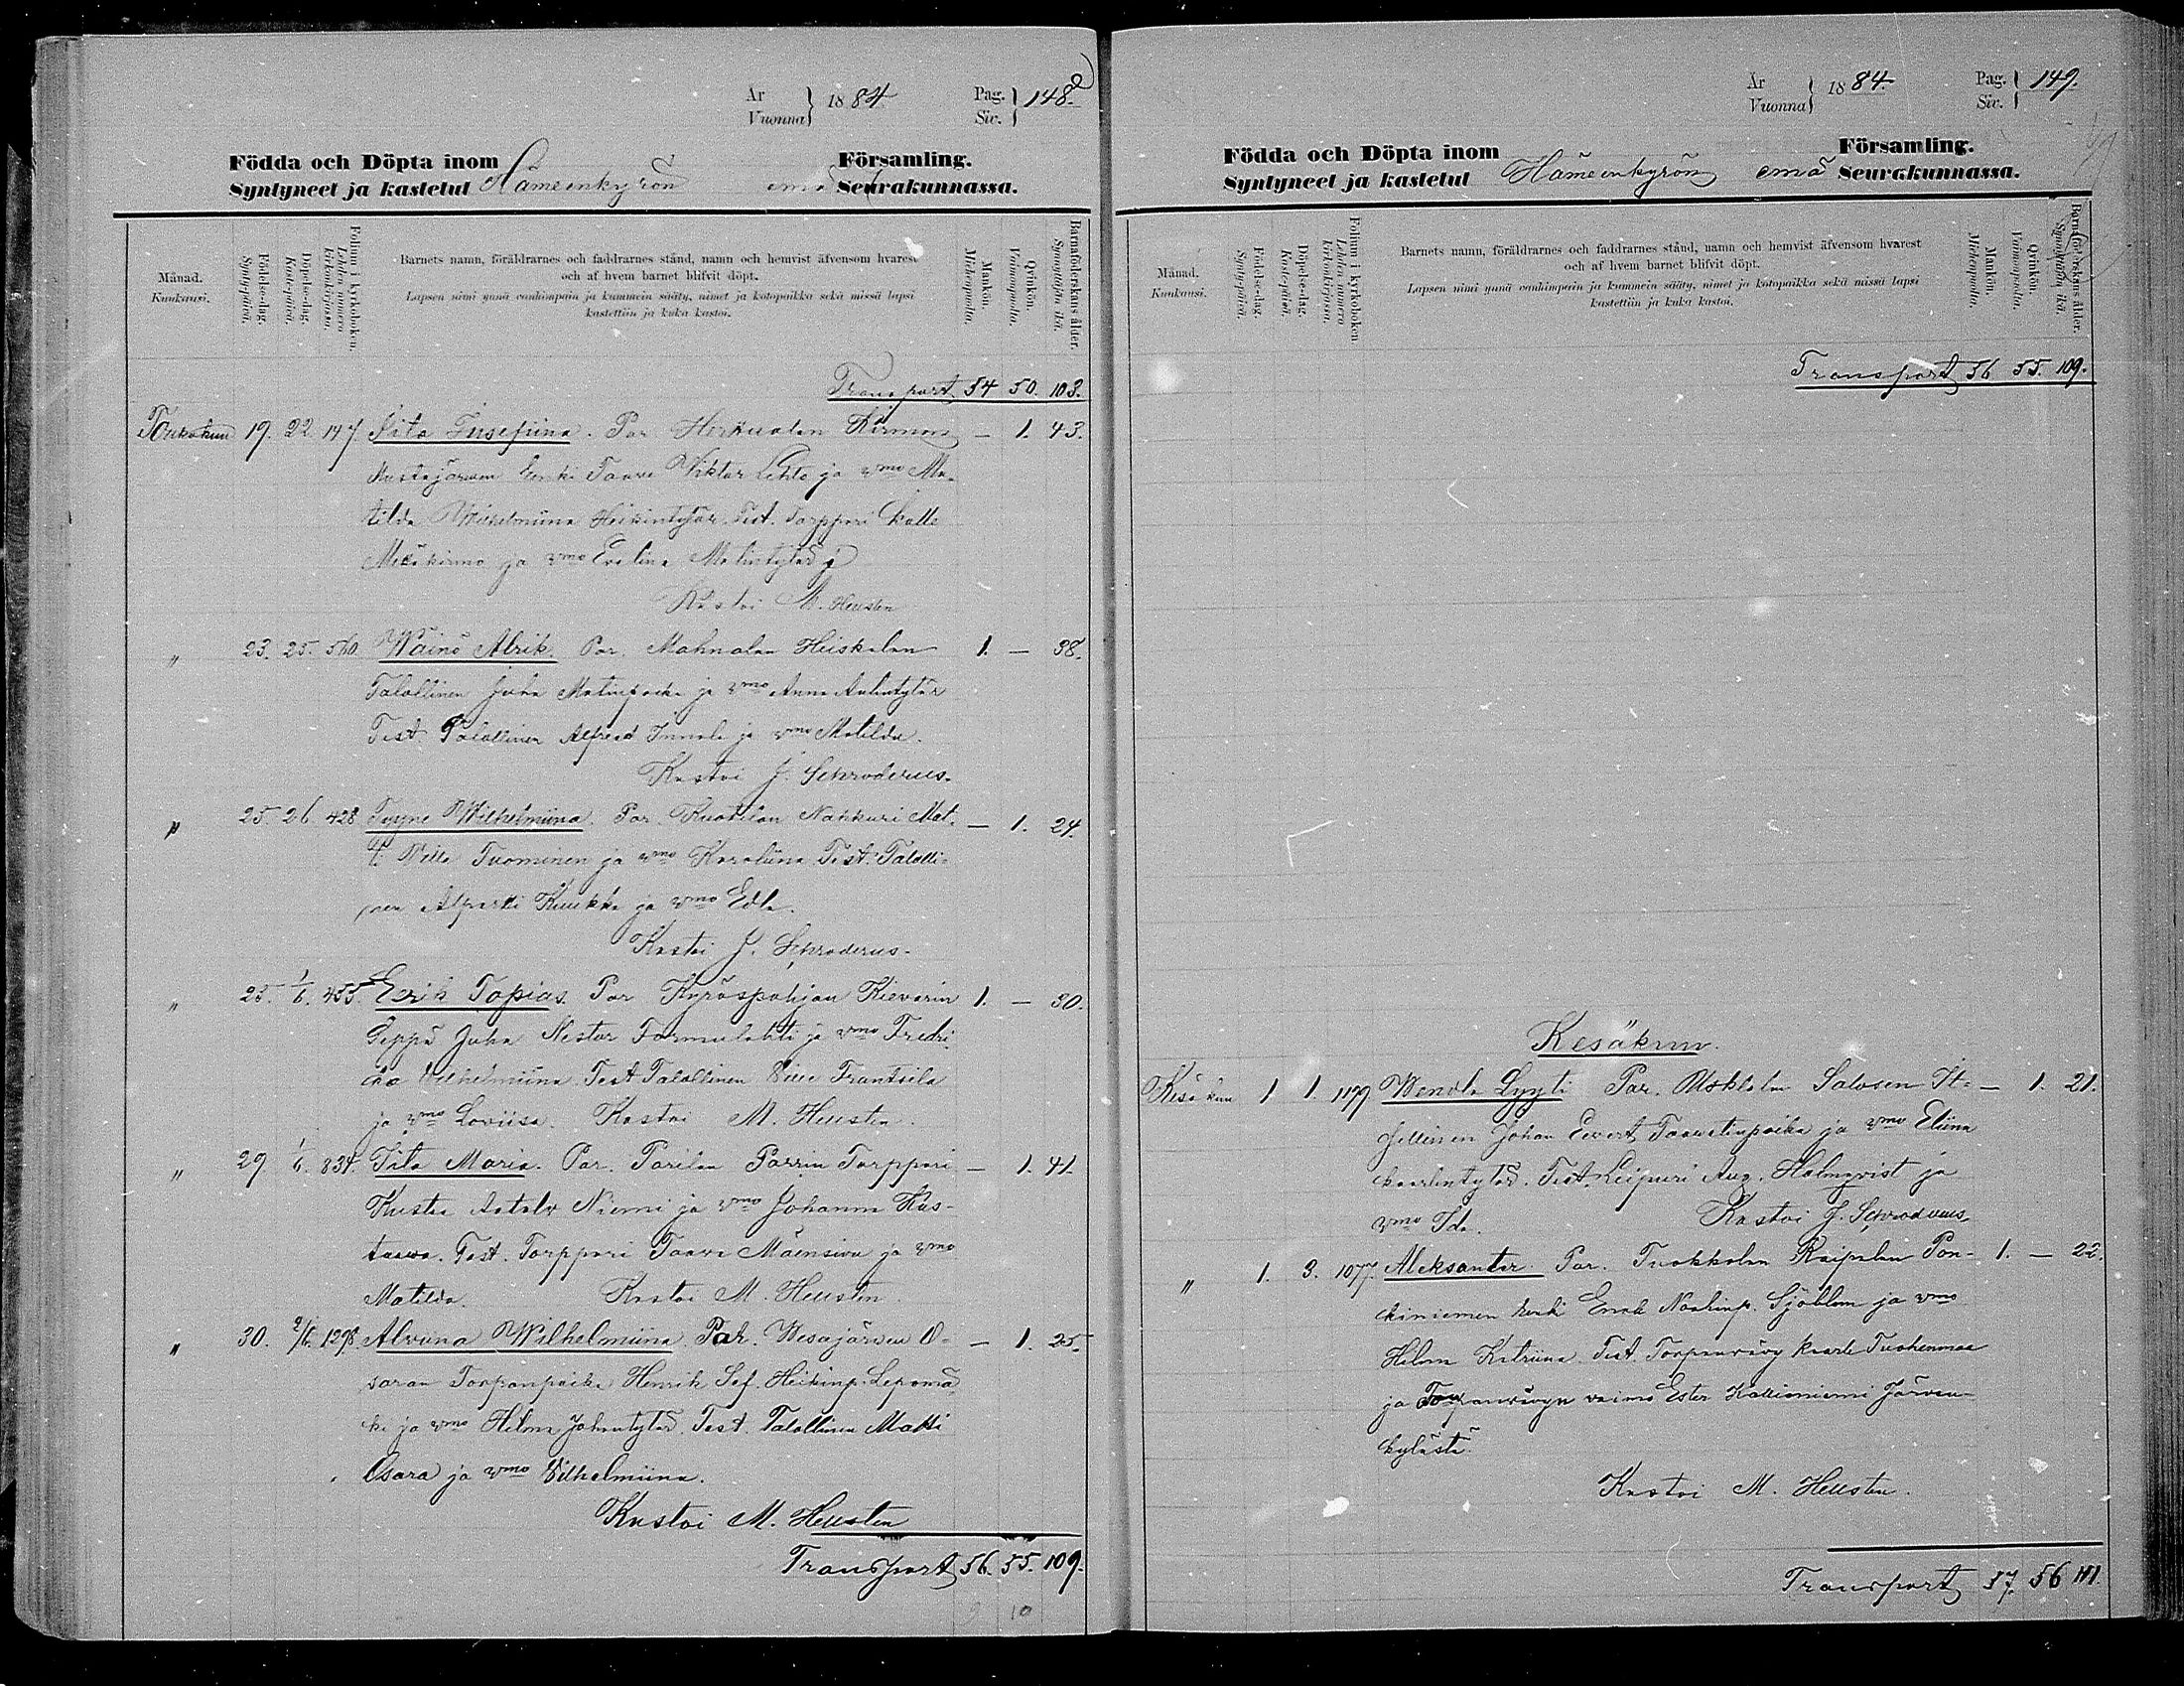 År
Vuonna } 1884
Pag.
Siv. } 148.
Födda och Döpta inom Hämeenkyrön emä Församling.
Syntyneet ja kastetut Seurakunnassa.
Månad.
Kuukausi.
Födelse-dag.
Syntypäivä.
Döpelse-dag.
Kastepäivä.
Folium i kyrkoboken.
Lehden numero kirkonkirjassa.
Barnets namn, föräldrarnes och faddrarnes stånd, namn och hemvist äfvensom hvarest
och af hvem barnet blifvit döpt.
Lapsen nimi ynnä vanhimpain ja kummein sääty, nimet ja kotopaikka sekä missä lapsi
kastettiin ja kuka kastoi.
Mankön.
Miehenpuolta.
Qvinkön.
Vaimonpuolta.
Barnaföderskans ålder.
Synnyttäjän ikä.
Transport 54 50. 103.
Toukokuu 19. 22. 147 Iita Jusefiina. Par. Herkualan Kirmu — 1. 43.
Mustajärven Taave Viktor Lehto ja vmo Ma-
tilda Wilhelmiina Heikintytär. Test. Torppari Kalle
ja vmo Evelina Matintytär
Kastoi M. Heusten
" 23. 25. 560. Wäinö Alrik. Par. Mahnalan Heiskalan 1. — 38.
Talollinen Juha Matinpoika ja vmo Anna Antintytär
Test. Talollinen Alfred Innala ja vmo Matilda.
Kastoi J. Schroderus.
" 25. 26 428 Tyyne Wilhelmiina. Par. Kuotilan Nahkuri Mat- — 1. 24.
t. Wille Tuominen ja vmo Karoliina Test. Talolli-
nen Alpertti Kuukka ja vmo Edla.
Kastoi J. Schroderus.
" 25. 1/6. 455. Eerik Topias. Par Kyröspohjan Kievarin 1. — 30.
Seppä Juha Nestor Tormulahti ja vmo Fredri-
ka Wilhelmiina Test Talollinen Ville Frantsila
ja vmo Loviisa. Kastoi M. Heusten.
" 29 1/6. 834. Iita Maria. Par. Parilan Parrin Torppari — 1. 41.
Kustaa Antala Niemi ja vmo Johanna Kus-
taava. Test. Torppari Taave Mäensivu ja vmo
Matilda. Kastoi M. Heusten.
" 30. 2/6. 1298. Alviina Wilhelmiina. Par. Wesajärven O- — 1. 25.
saran Torpanpoika Henrik Sef. Heikinp. Lepomä-
ki ja vmo Hilma Johantytär. Test. Talollinen Matti
Osara ja vmo Vilhelmiina.
Kastoi M. Heusten
Transport 56. 55. 109.
10
År
Vuonna } 1884.
Pag.
Siv. } 149.
Födda och Döpta inom Hämeenkyrön emä Församling.
Syntyneet ja kastetut Seurakunnassa.
Månad.
Kuukausi.
Födelse-dag.
Syntypäivä.
Döpelse-dag.
Kastepäivä.
Folium i kyrkoboken
Lehden numero kirkonkirjassa.
Barnets namn, föräldrarnes och faddrarnes stånd, namn och hemvist äfvensom hvarest
och af hvem barnet blifvit döpt.
Lapsen nimi ynnä vanhimpain ja kummein sääty, nimet ja kotopaikka sekä missä lapsi
kastettiin ja kuka kastoi.
Mankön.
Miehenpuolta.
Qvinkön.
Vaimonpuolta.
Barnaföderskans ålder.
Synnyttäjän ikä.
Transport 56 55. 109.
Kesäkuu.
Kesäkuu 1 1. 1179 Wendla Lyyti Par. Salosen It- — 1. 21.
sellinen Johan Evert Taavetinpoika ja vmo Eliina
Kaarlentytär. Test. Leipuri Aug. Holmqvist ja
vmo Ida. Kastoi J. Schroderus.
" 1. 3. 1077. Aleksanter. Par. Tuokkolan Raipalan Pon- 1. — 22.
kiniemen Eenok Sjöblom ja vmo
Hilma Katriina. Test. Torpanvävy Kaarle Tuohenmaa
ja Torpanvävyn vaimo Ester Kallioniemi Järven-
kylästä.
Kastoi M. Heusten.
Transport 57. 56 111.